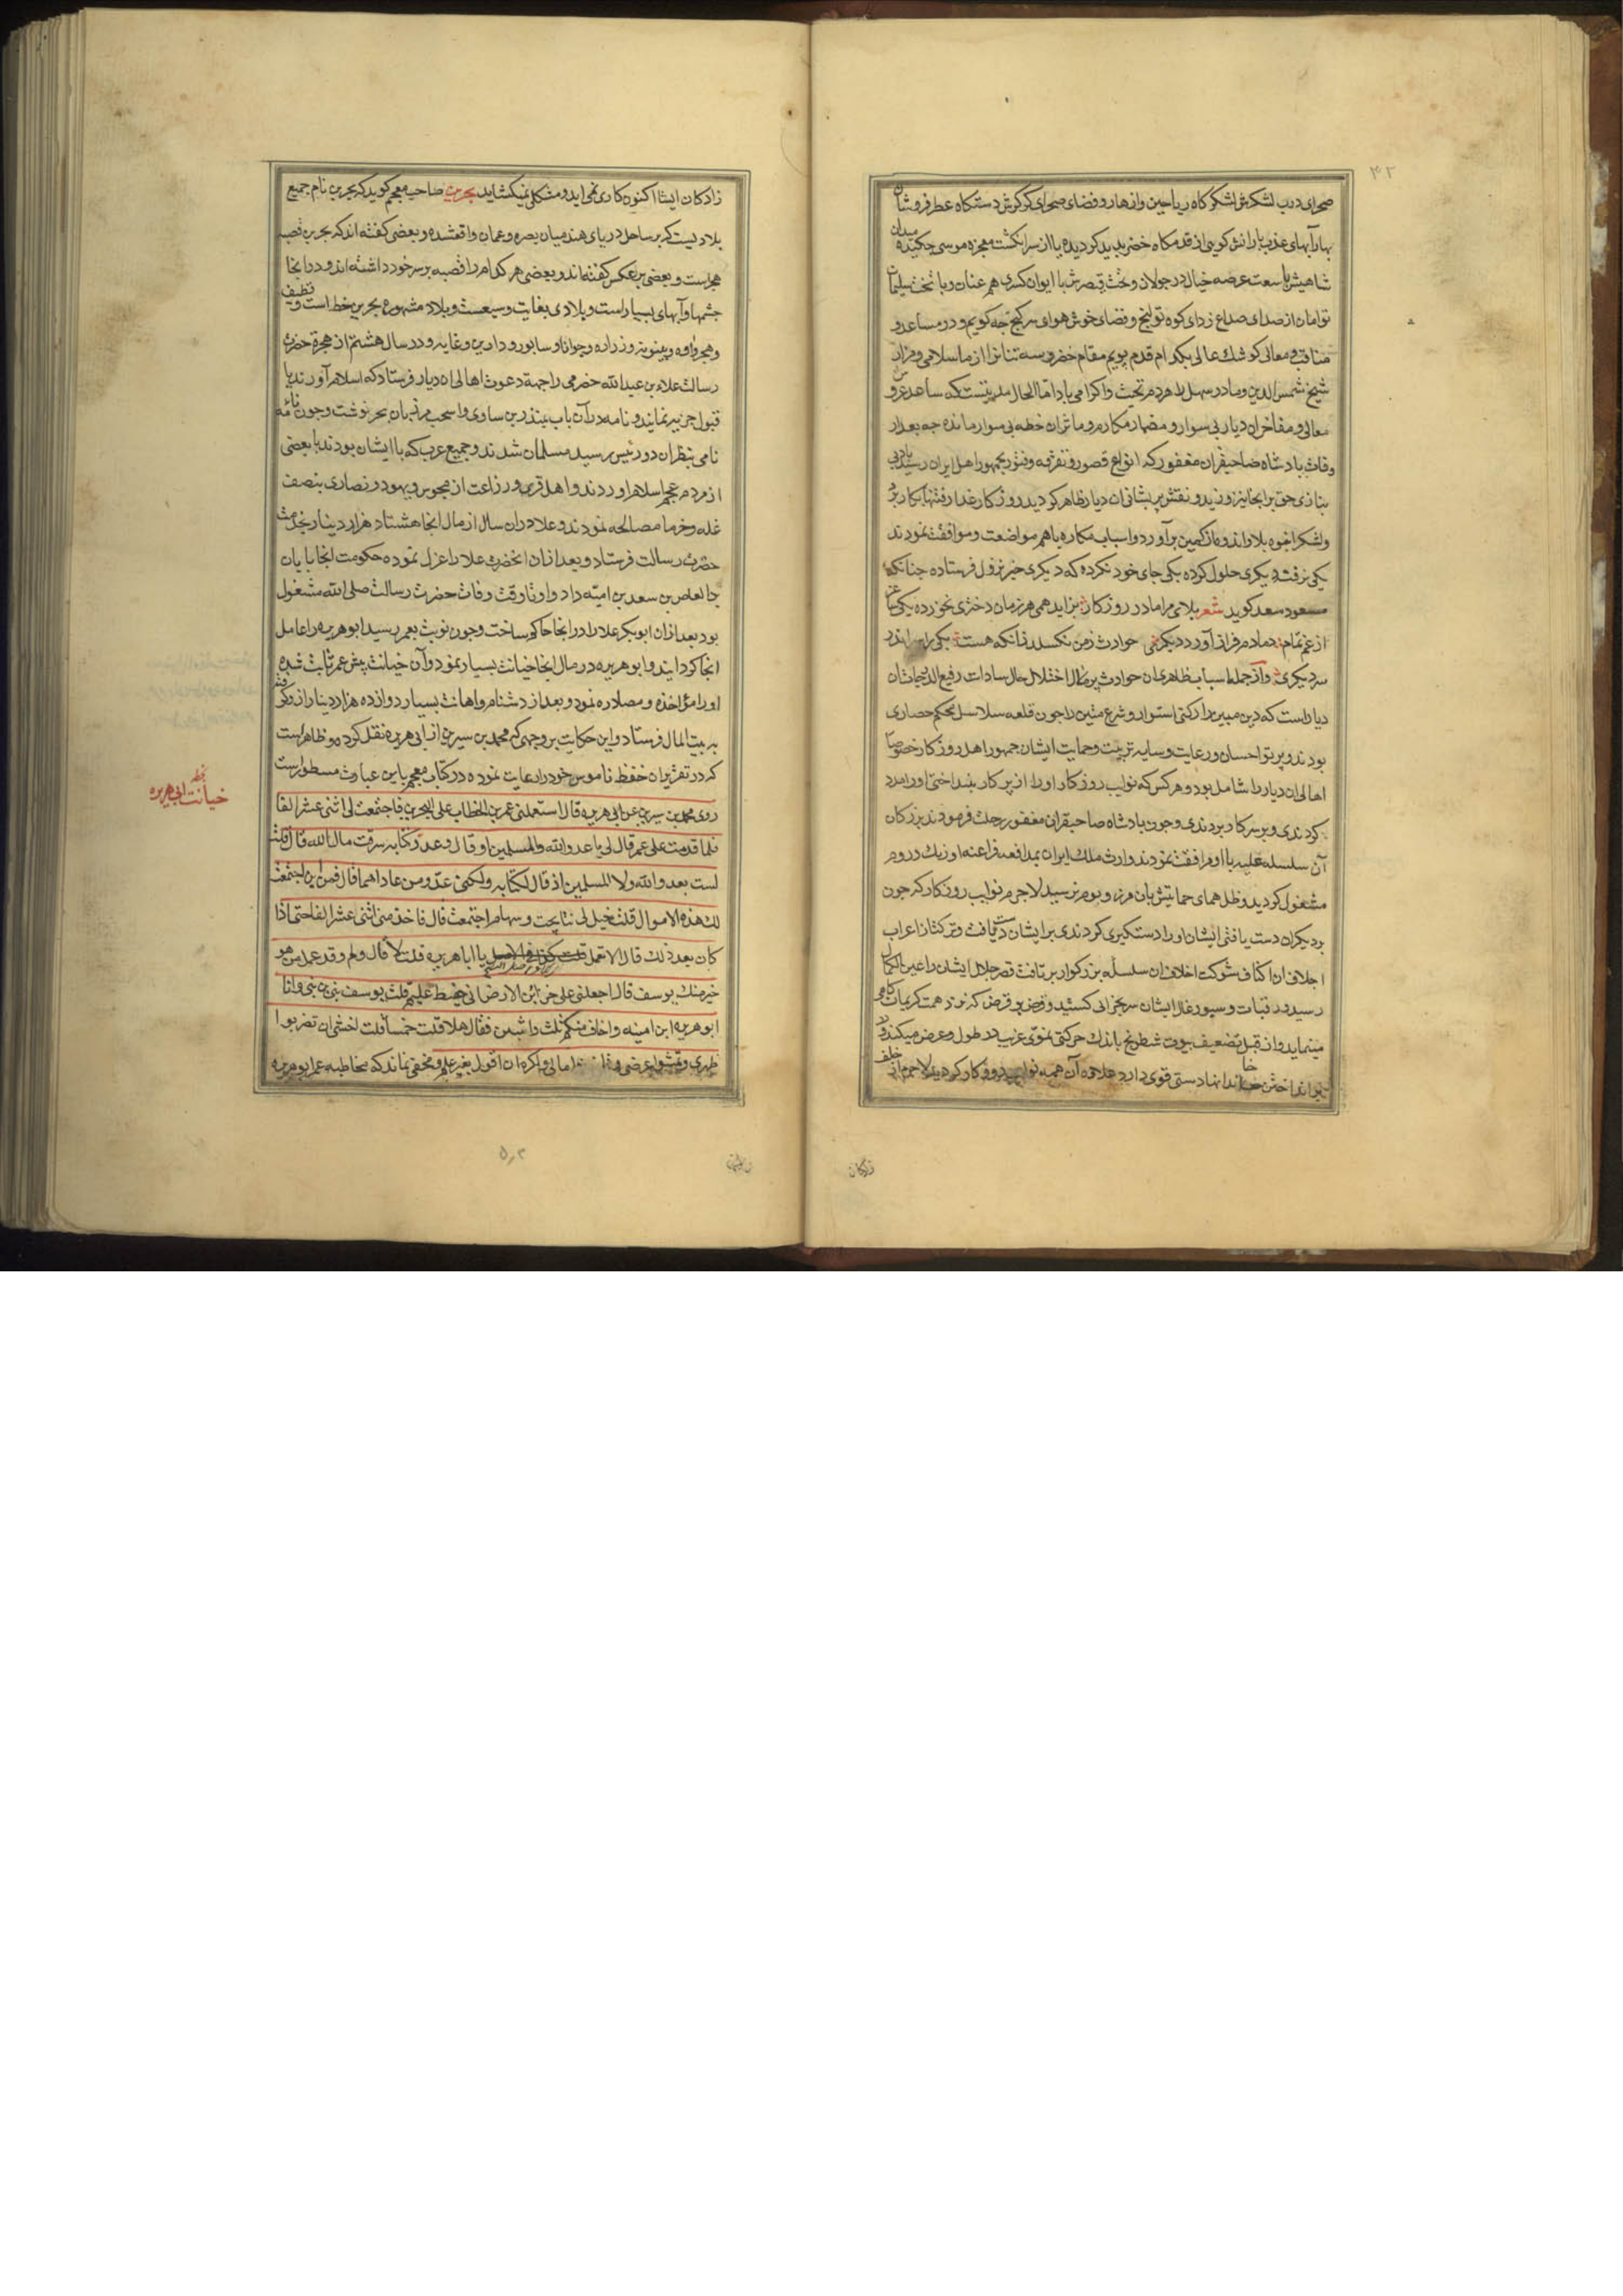 ۴۲
صحرای درب لشکرش لشکر کاه ریاحین و ازهار و فضای صحرای کرکرش دستکاه عطر فروشان
بهار آبهای عذب بارانش کویی از قدمکاه خضر پدید کردیده یا از سر انکشت معجزه موسی چکیده میدان
شاهیش با سعت عرصه خیال در جولان و تخت قیصرش با ایوان کسری هم عنان و با تخت سلیمان
توامان از صدای صداع زدای کوه تو اینج و فضای خوش هوای سرکنج چه کویم و در مساعد و
مناقب و معالی کوشک عالی بکدام قدم پویم مقام خضر و سه تنانرا از ما سلامی و مزار
شیخ شمس الدین و مادر سهل لاهرد م تحیت و اکرامی باد اما الحال مدتیست که ساعد عز و
معالی و مفاخر ان دیار بی سوار و مضمار مکارم و ماثر ان خطه بی سوار مانده چه بعد از
وفات پادشاه صاحبقران مغفور که انواع قصور و تفرقه و فتور بجمهور اهل ایران رسید بادبی
نیازی حق بر انجا نیز وزید و نقش پریشانی ان دیار ظاهر کردید روزکار غدار رفتنها بکار برد
و لشکر انبوه بلا و اندوه از کمین بر آورد و اسباب مکاره باهم مواضعت و موافقت نمودند
یکی نرفته دیکری حلول کرده یکی جای خود نکرده که دیکری خبر نزول فرستاده چنانکه
مسعود سعد کوید شعر بلای مرا مادر روزکار بزاید همی هر زمان دختری نخورده یکی ساغر
از غم تمام دمادم فراز آورد دیکری حوادث ز من نکسلد زانکه هست یکی را سر اندر
سر دیکری و از جمله اسباب ظاهری ان حوادث پر ملال اختلال حال سادات رفیع الدرجات ان
دیار است که دین مبین را رکنی استوار و شرع متین را چون قلعه سلاسل محکم حصاری
بودند و پرتو احسان و رعایت و سایه تربیت و حمایت ایشان جمهور اهل روزکار خصوصا
اهالی ان دیار را شامل بود و هر کس که نوایب روزکار او را از پر کار بینداختی او را مدد
کردندی و بر سر کار بردندی و چون پادشاه صاحبقران مغفور رحلت فرمودند بزرکان
آن سلسله علیه با او مرافقت نمودند و ارث ملک ایران بمدافعه فراعنه اوزبک و روم
مشغول کردید و ظل همای حمایتش بان مرز و بوم نرسید لاجرم نوایب روزکار که چون
بر دیکران دست یافتی ایشان او را دستکیری کردندی بر ایشان دست یافت و ترکتاز اعراب
اجلاف ان اکناف شوکت اخلاف ان سلسله بزرکوار بر تافت قصر جلال ایشان را عین الکمال
رسید و رقبات و سیورغال ایشان سر بخرابی کشید و قرض بر قرض که نزد همت کریمان کامی
مینماید و از قبل تضعیف بیوت شطرنج باندک حرکتی نموی غریب در طول و عرض میکند و در
بر انداختن خاندانها دستی قوی دارد علاوه آن همه نوایب روزکار کردید لاجرم از خلف
زادکان
زادکان ایشان اکنون کاری نمی اید و مشکلی نمیکشاید بحرین صاحب معجم کوید که بحرین نام جمیع
بلادیست که بر ساحل دریای هند میان بصره و عمان واقعشده و بعضی کفته اند که بحرین قصبه
هجر است و بعضی بر عکس کفته اند و بعضی هر کدام را قصبه بر سر خود داشته اند و در انجا
چشمها و آبهای بسیار است و بلادی بغایت وسیعست و بلاد مشهوره بحرین خط است و قطیف
و هجر و اوه و بینونه و زراره و جواثا و سابور و دارین و غابه و در سال هشتم از هجرة حضرت
رسالت علاء بن عبد الله حضرمی را جهة دعوت اهالی ان دیار فرستاد که اسلام آورند یا
قبول جزیه نمایند و نامه در آن باب بمنذر بن ساوی و اسحب مرزبان هجر نوشت و چون نامه
نامی بنظر ان دو رئیس رسید مسلمان شدند و جمیع عرب که با ایشان بودند با بعضی
از مردم عجم اسلام اوردند و اهل قری و زراعت از مجوس و یهود و نصاری بنصف
غله و خرما مصالحه نمودند و علا در ان سال از مال انجا هشتاد هزار دینار بخدمت
حضرت رسالت فرستاد و بعد از ان انحضرت علا را عزل نموده حکومت انجا بابان
بن العاص بن سعد بن امیّه داد و او تا وقت وفات حضرت رسالت صلی الله مشغول
بود بعد از ان ابو بکر علا را در انجا حاکم ساخت و چون نوبت بعمر رسید ابو هریره را عامل
انجا کردانید و ابو هریره در مال انجا خیانت بسیار نمود و آن خیانت پیش عمر ثابت شده
او را مؤاخذه و مصادره نمود و بعد از دشنام و اهانت بسیار دوازده هزار دینار از و کرفته
به بیت المال فرستاد و این حکایت بر وجهی که محمد بن سیرین از ابی هریره نقل کرده و ظاهر است
که در تقریر ان حفظ ناموس خود را رعایت نموده در کتاب معجم باین عبارت مسطور است
روی محمد بن سیرین عن ابی هریره قال استعملنی عمر بن الخطاب علی البحرین فاجتمعت لی اثنی عشر الفا
فلما قدمت علی عمر قال لی یا عدو الله و المسلمین او قال و عدو کتابه سرقت مال الله قال قلت
لست بعدو الله ولا المسلمین اذ قال لکتابه ولکنی عدو من عاداهما قال فمن این اجتمعت
لک هذه الاموال قلت خیل لی نتایجت و سهام اجتمعت قال فاخذ منی اثنی عشر الفا حتی اذا
کان بعد ذلک قال الا تعمل یا ابا هریره قلت لا قال ولم و قد عمل من هو
خیر منک یوسف قال اجعلنی علی خزائن الارض انی حفیظ علیم قلت یوسف نبی بن نبی و انا
ابو هریره ابن امیمه و اخاف منکم ثلث و اثنین فقال هلا قلت خمسا قلت اخشی ان تضربوا
ظهری و تشتموا عرضی و تاخذوا مالی و اکره ان اقول بغیر علم و مخفی نماند که مخاطبه عمر ابو هریره
خیانت ابی هریره